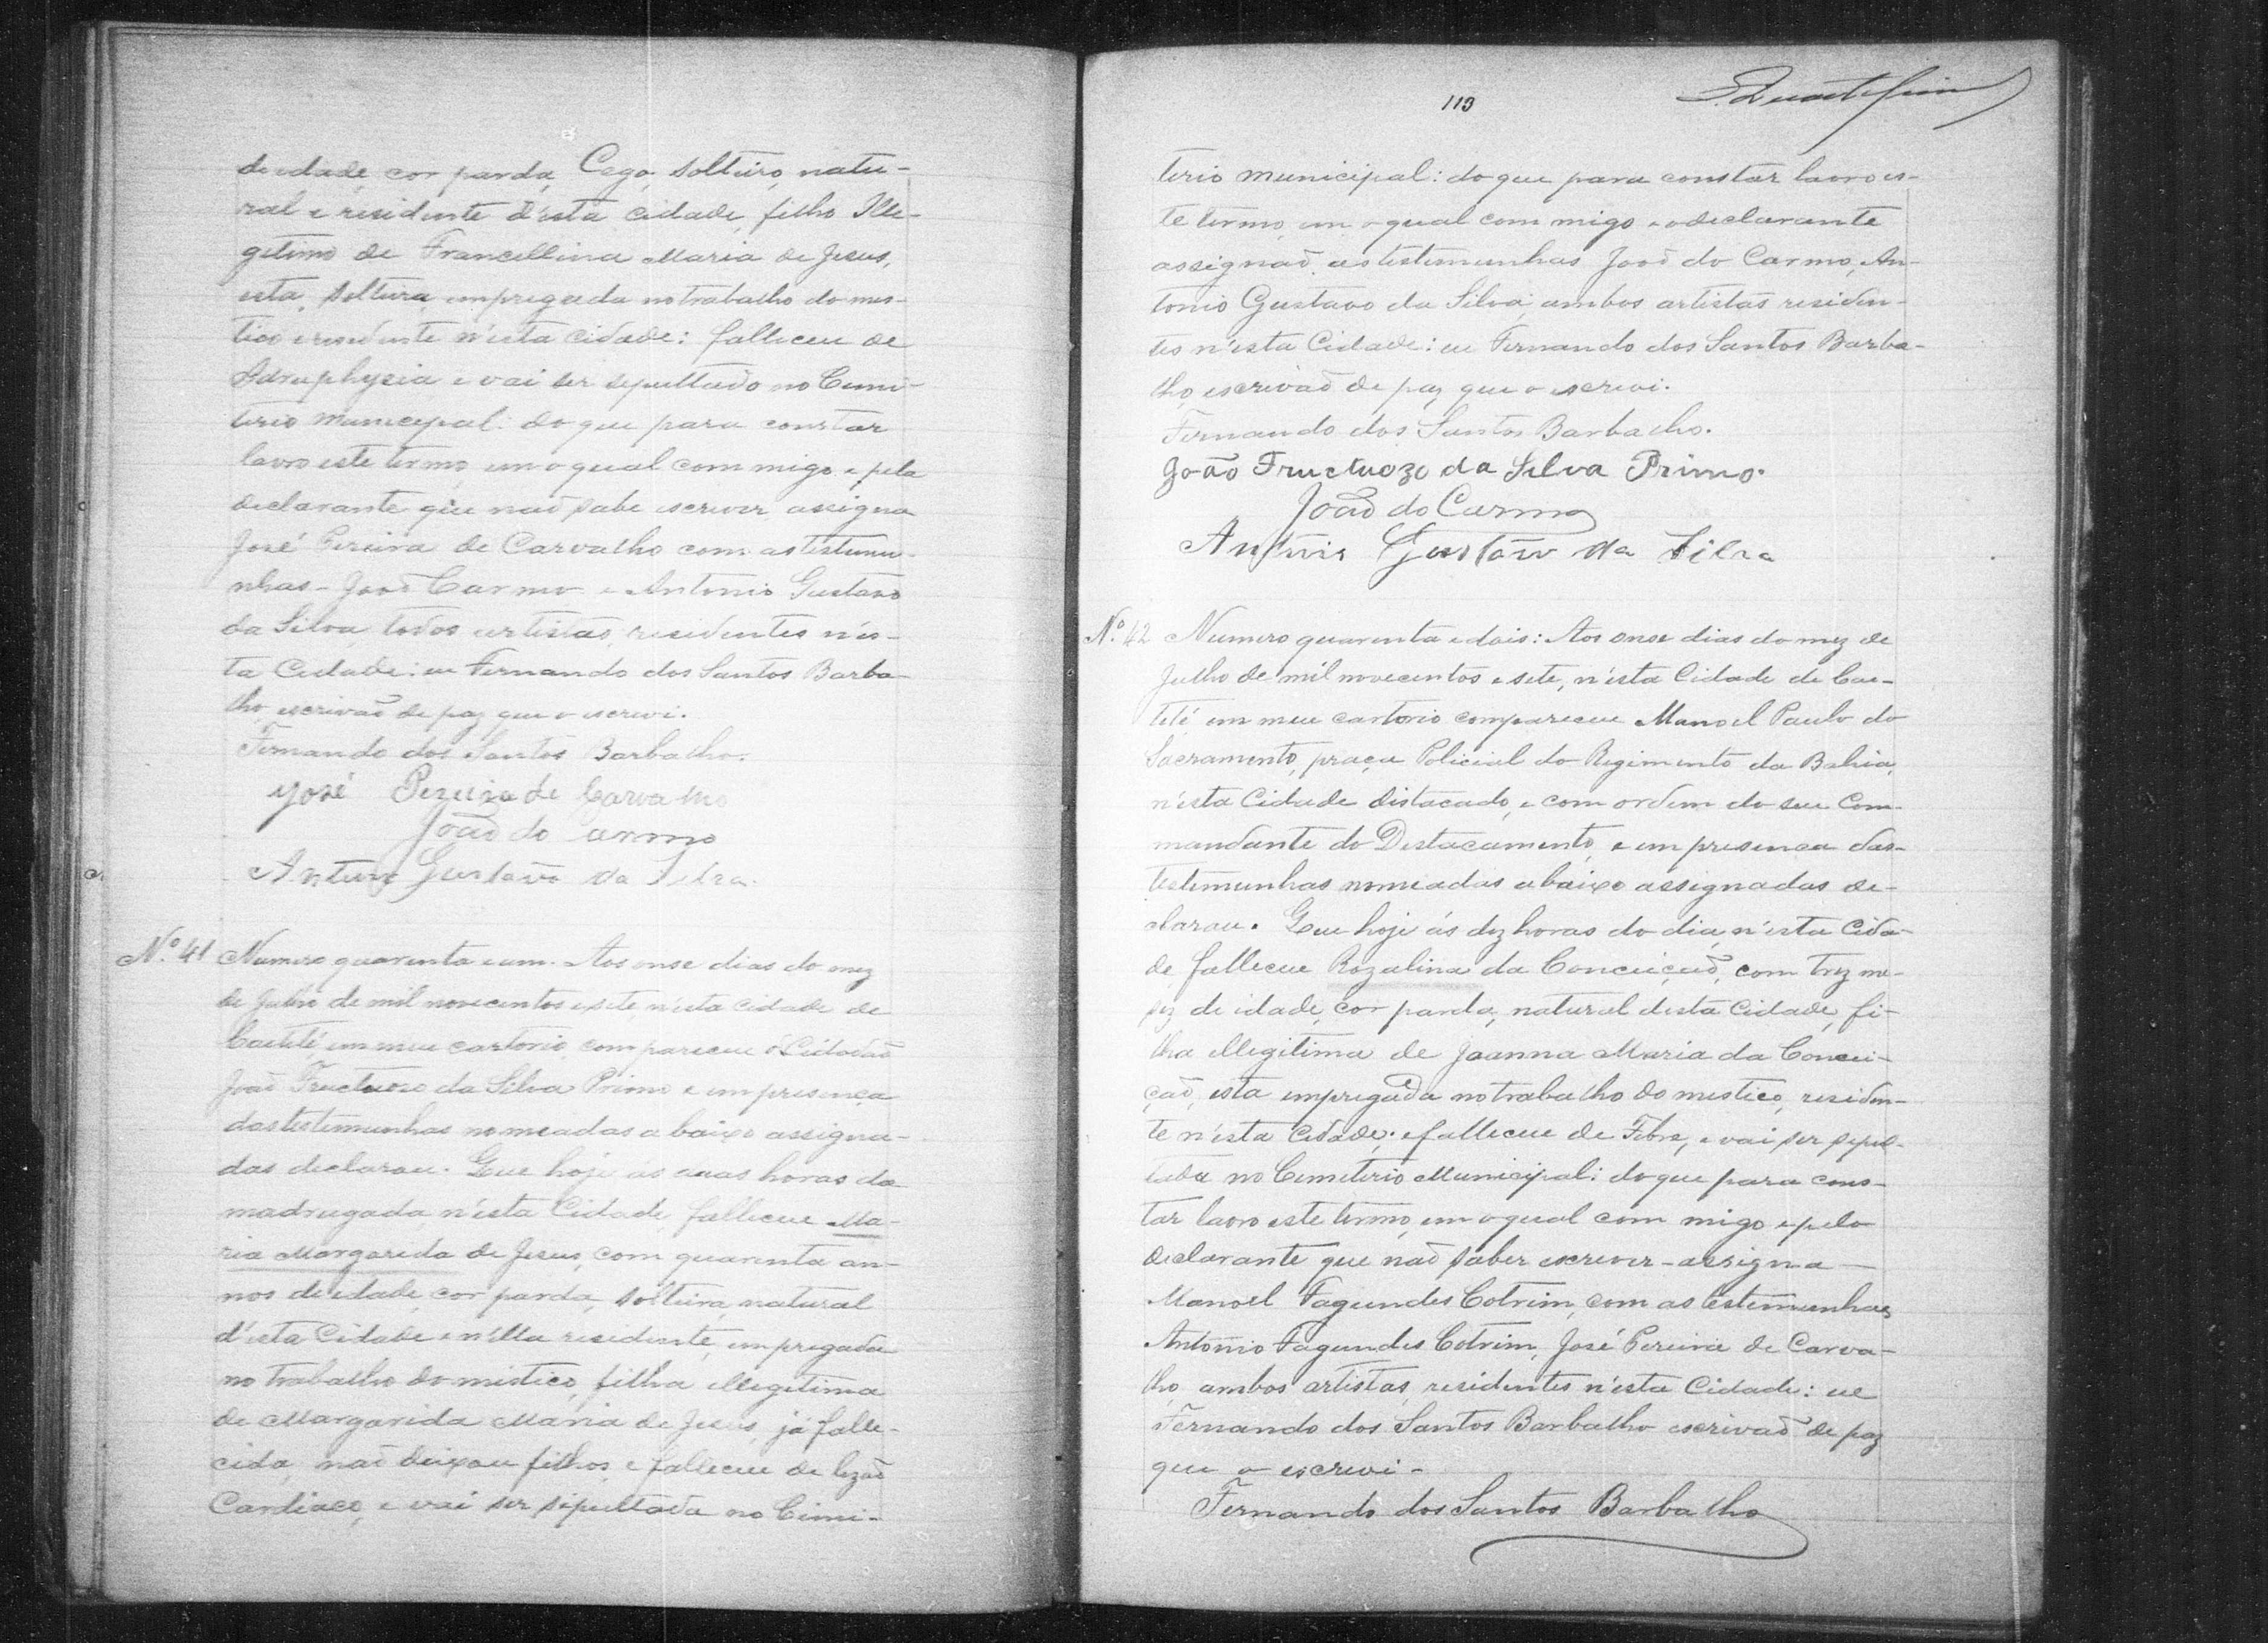 de edade, cor parda, Cego, solteiro, natu-
ral e residente d'esta cidade, filho Ille-
getimo de Francellina Maria de Jesus,
esta, solteira, empregada no trabalho do mes-
tico e residente n'esta Cidade: falleceu de
Idrophysia e vai ser sepultado no Cemi-
terio Municepal: do que para constar
lavro este termo, em o qual commigo e pela
declarante que naõ sabe escrever assigna
José Pereira de Carvalho com as testemu-
nhas - Joaõ Carmo e Antonio Gustavo
da Silva, todos artistas, residentes n'es-
ta Cidade: eu Fernando dos Santos Barba-
lho, escrivaõ de paz que o escrevi.
Fernando dos Santos Barbalho.
José Pereira de Carvalho
Joaõ do Carmo
Antonio Gustavo da Silva.
Nº 41 Numero quarenta e um. Aos onse dias do mez
de Julho de mil novecentos e sete, n'esta Cidade de
Caetité, em meu cartorio, compareceu o Cidadaõ
Joaõ Fructuoso da Silva Primo e em presença
das testemunhas nomeadas abaixo assigna-
das declarou. Que hoje ás duas horas da
madrugada n'esta Cidade falleceu Ma-
ria Margareda de Jesus, com quarenta an-
nos de edade, cor parda, solteira, natural
d'esta Cidade e n'ella residente, empregada
no trabalho do mistico, filha illegitima
de Margarida Maria de Jesus, já falle-
cida, naõ deixou filhos, e falleceu de lezaõ
Cardiaco, e vai ser sepultada no Cimi-
113
terio municipal: do que para constar lavro es-
te termo, em o qual com migo e o declarante
assignaõ as testemunhas Joaõ do Carmo, An-
tonio Gustavo da Silva, ambos artistas residen-
tes n'esta Cidade: eu Fernando dos Santos Barba-
lho, escrivaõ de paz que o escrevi.
Fernando dos Santos Barbalho.
João Fructuozo da Silva Primo.
Joaõ do Carmo
Antonio Gustavo da Silva
Nº 42 Numero quarenta e dois: Aos onse dias do mez de
Julho de mil novecentos e sete, n'esta Cidade de Cae-
teté em meu cartorio compareceu Manoel Paulo do
Sacramento, praça Policial do Regimento da Bahia,
n'esta Cidade distacado, e com ordem do seu Com-
mandante do Destacamento, e em presença das-
testemunhas nomeadas abaixo assignadas de-
clarou. Que hoje ás dez horas do dia, n'esta Cida-
de, falleceu Rozalina da Conceiçaõ, com trez me-
sez de idade, cor parda, natural desta Cidade, fi-
lha illegitima de Joanna Maria da Concei-
çaõ, esta empregada no trabalho do mestico, residen-
te n'esta Cidade; e falleceu de Febre, e vai ser sepul-
tada no Cemeterio Municipal: do que para cons-
tar lavro este termo, em o qual com migo e pelo
declarante que naõ saber escrever - assigna -
Manoel Fagundes Cotrim, com as testemunhas
Antonio Fagundes Cotrim, José Pereira de Carva-
lho, ambos artistas, residentes n'esta Cidade: eu
Fernando dos Santos Barbalho escrivaõ de paz
que o escrevi -
Fernando dos Santos Barbalho